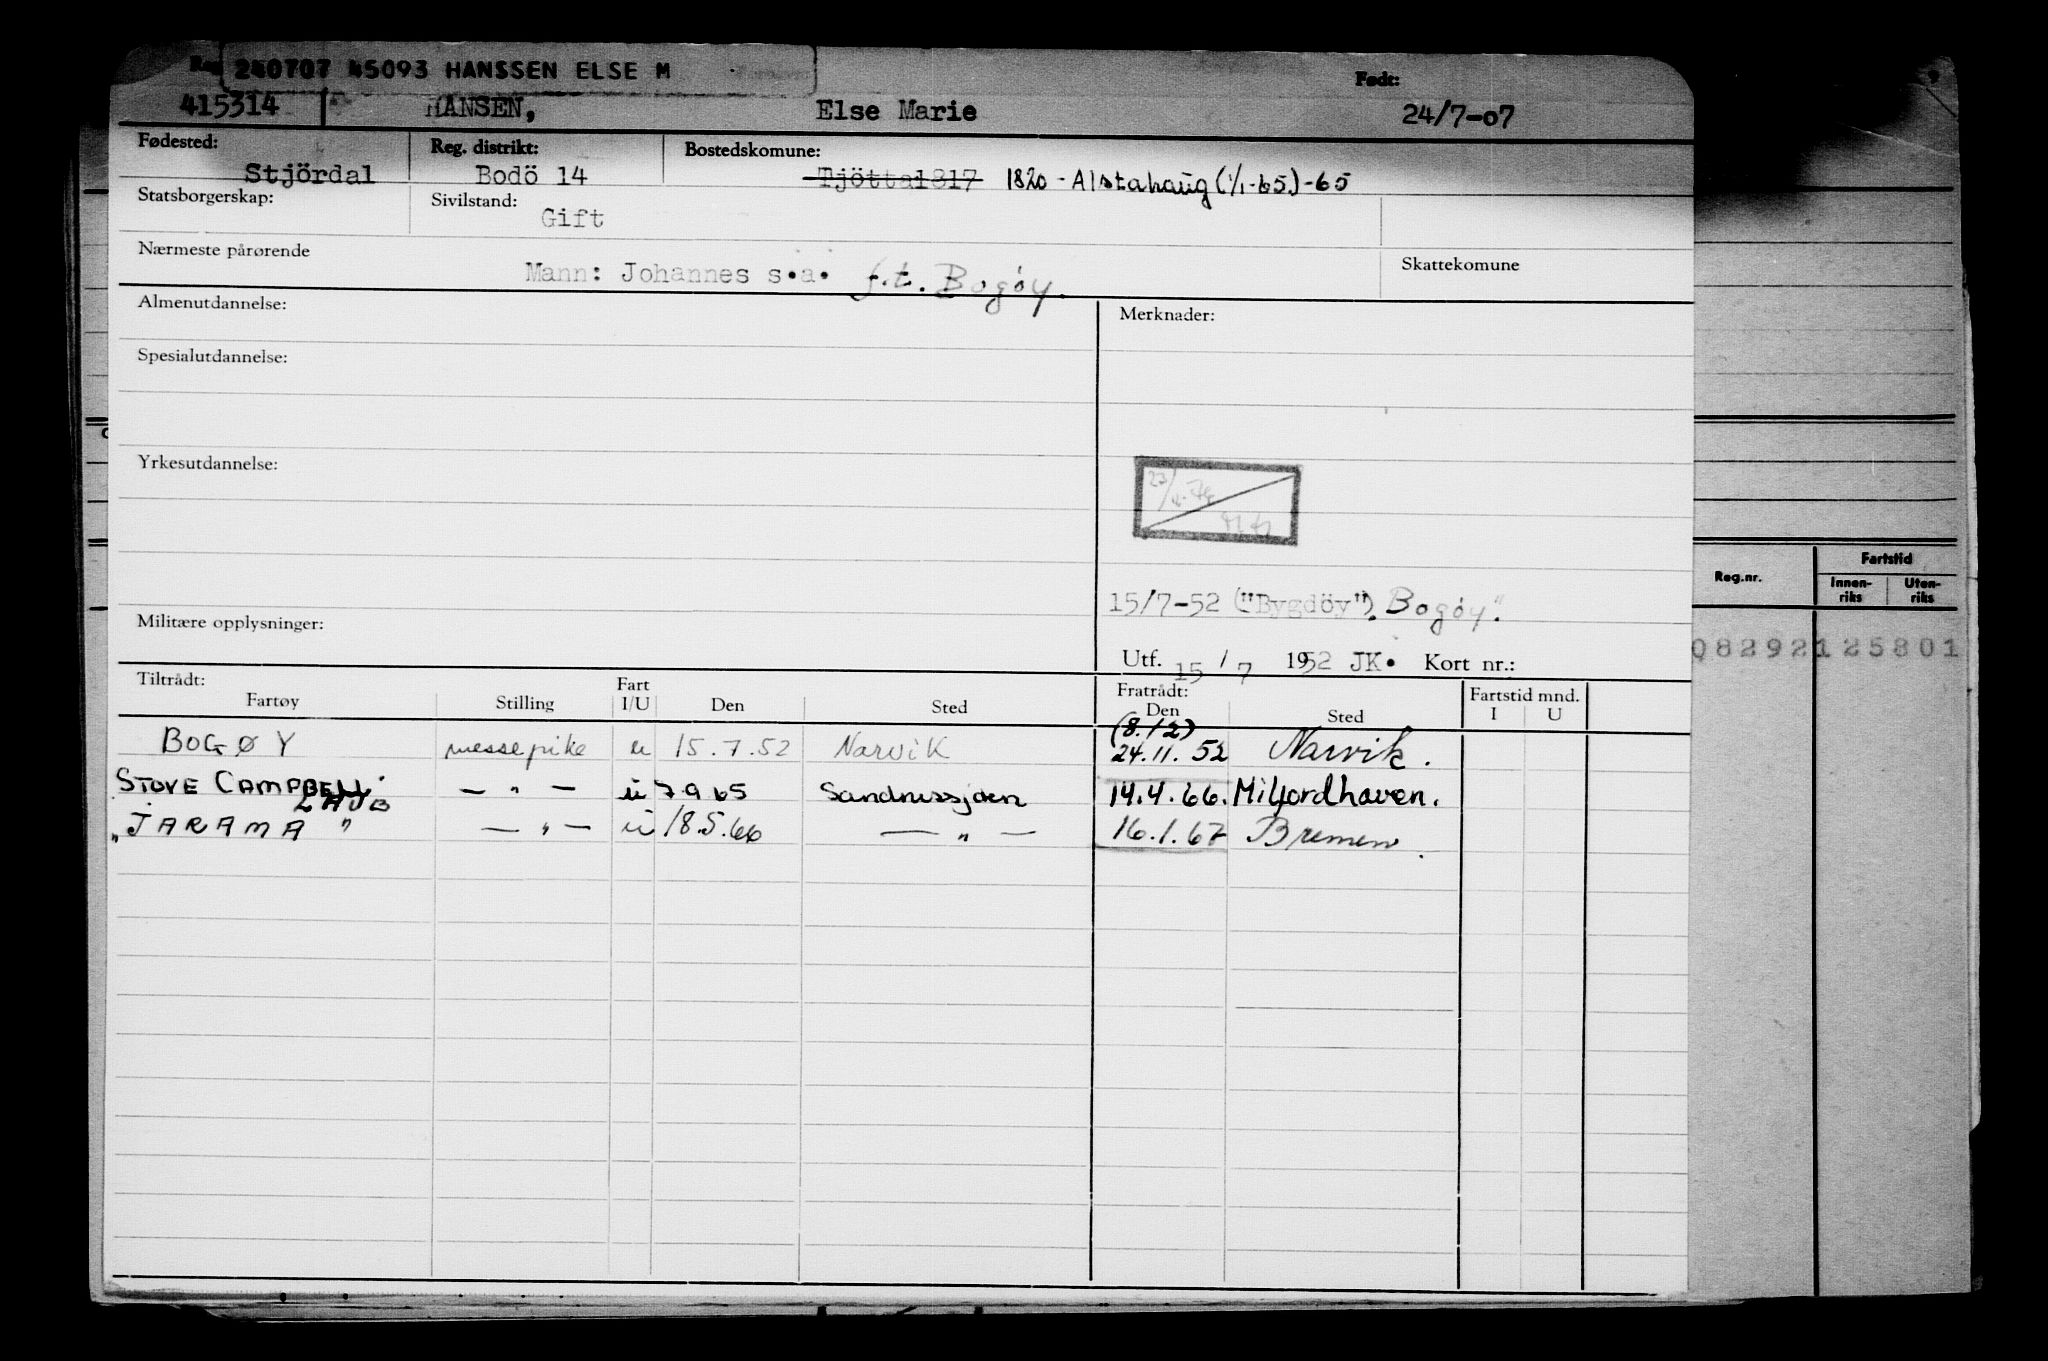 240707 45093 HANSSEN ELSE M
415314 HANSEN, Else Marie Født: 24/7-07
Fødested: Stjördal Reg. distrikt: Bodö 14 Bostedskomune: Tjötta1817 1820 - Alstahaug (1/1-65) -65
Statsborgerskap: Sivilstand: Gift
Nærmeste pårørende Mann: Johannes s.a. f.t. Bogöy. Skattekomune
Almenutdannelse: Merknader:
Spesialutdannelse:
Yrkesutdannelse:
15/7-52 ("Bygdöy"). Bogöy".
Militære opplysninger:
Utf. 15 / 7 1952 JK. Kort nr.:
Tiltrådt: Fratrådt: Fartstid mnd.
Fartøy Stilling Fart I/U Den Sted Den Sted I U
(8.12)
BOGØY messepike u 15.7.52 Narvik 24.11.52 Narvik.
STOVE CAMPBELL — " — u 7.9.65 Sandnessjøen 14.4.66. Milfordhaven.
LAJB
"JARAMA" — " — u 18.5.66 — " — 16.1.67 Bremen.
Reg.nr. Fartstid
Innenriks Utenriks
082921 25801